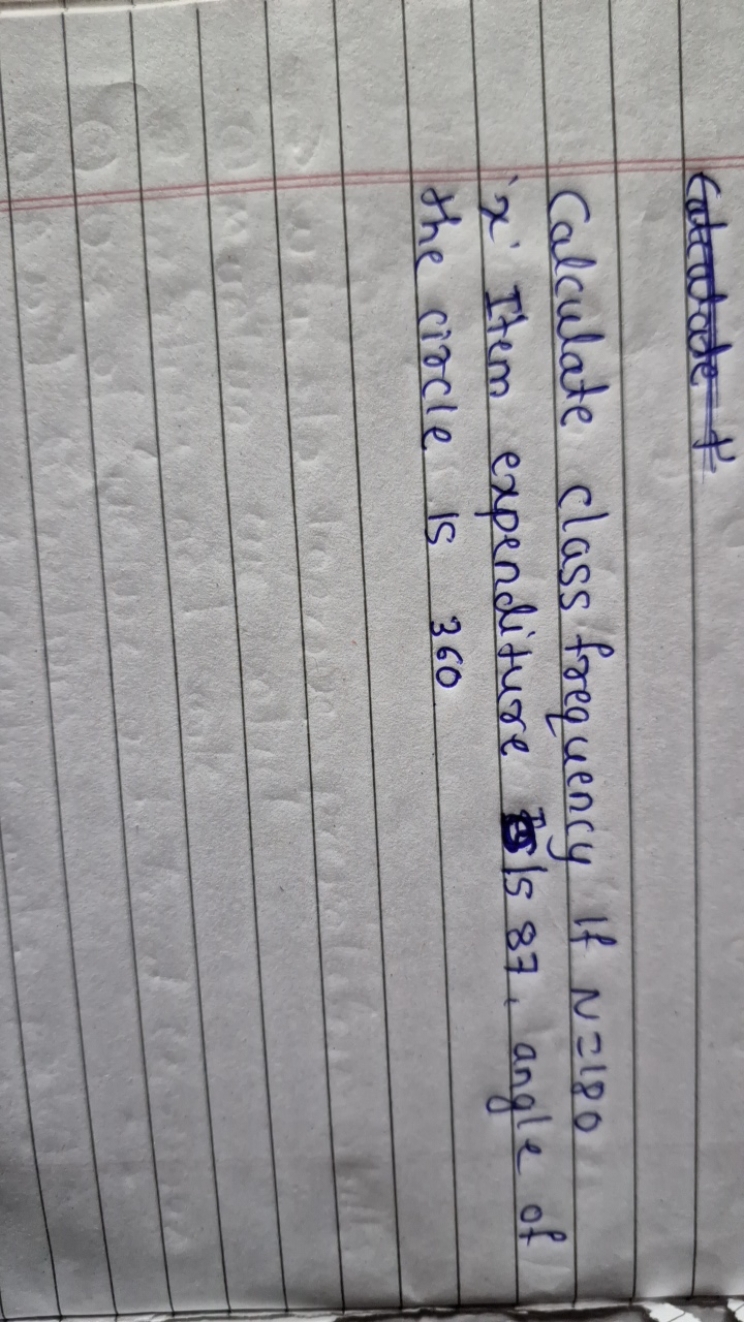 Calculate f
Calculate class frequency If N=180
'x' Item expenditure Is 87, angle of
the circle is 360